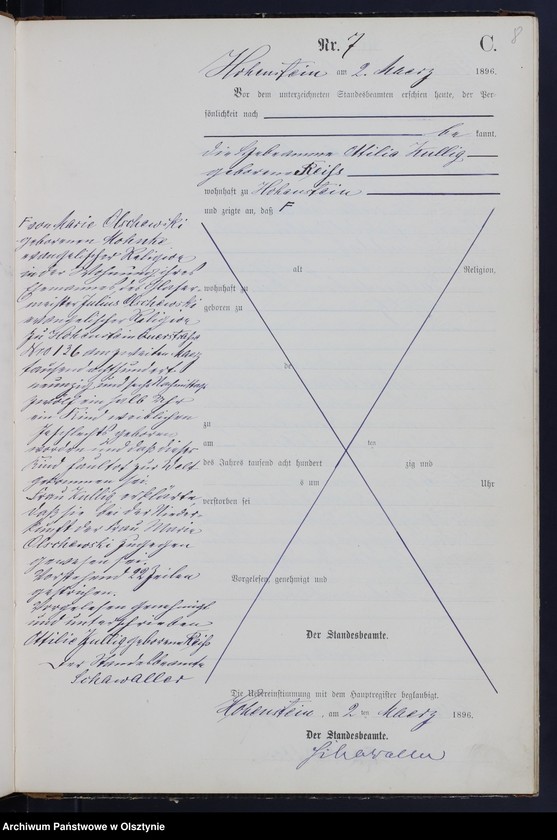 Nr. 7 C. 8
Hohenstein am 2. Maerz 1896.
Vor dem unterzeichneten Standesbeamten erschien heute, der Per-
sönlichkeit nach
be kannt,
die Hebeamme Ottilie Kullig
geborene Reiß
wohnhaft zu Hohenstein
und zeigte an, daß F
F von Marie Olschewski
geborenen
evangelischer Religion
in der Wohnung ihres
Ehemannes des Glaser-
meister Julius Olschewski
evangelischer Religion
zu Hohenstein
Nro 136 am zweiten Maerz
tausend achthundert
neunzig und sechs Nachmittags
zwölf ein halb Uhr
ein Kind weiblichen
Geschlechts geboren
worden und daß dieses
Kind todt zur Welt
gekommen sei.
Frau Kullig erklärte
daß sie bei der Nieder-
kunft der Frau Marie
Olschewski zugegen
gewesen sei.
Vorstehend 22 Zeilen
gestrichen.
Vorgelesen genehmigt
und unterschrieben
Ottilie Kullig geborene Reiß
Der Standesbeamte
Schawaller
alt Religion,
wohnhaft zu
geboren zu
de
zu
am ten
des Jahres tausend acht hundert zig und
s um Uhr
verstorben sei
Vorgelesen, genehmigt und
Der Standesbeamte.
Die Uebereinstimmung mit dem Hauptregister beglaubigt.
Hohenstein, am 2 ten Maerz 1896.
Der Standesbeamte.
Schawaller
Archiwum Państwowe w Olsztynie